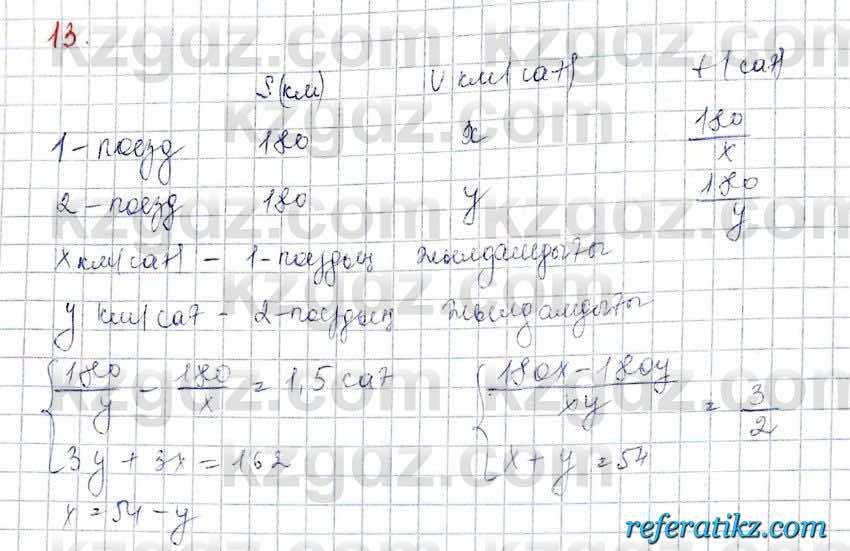 13.
S(км) V км/сат t (сат)
1-поезд 180 x 180/x
2-поезд 180 y 180/y
x км/сат - 1-поездың жылдамдығы
y км/сат - 2-поездың жылдамдығы
{ 180/y - 180/x = 1,5 сат { (180x - 180y)/xy = 3/2
3y + 3x = 162 x + y = 54
x = 54 - y
kzgdz.com
referatikz.com